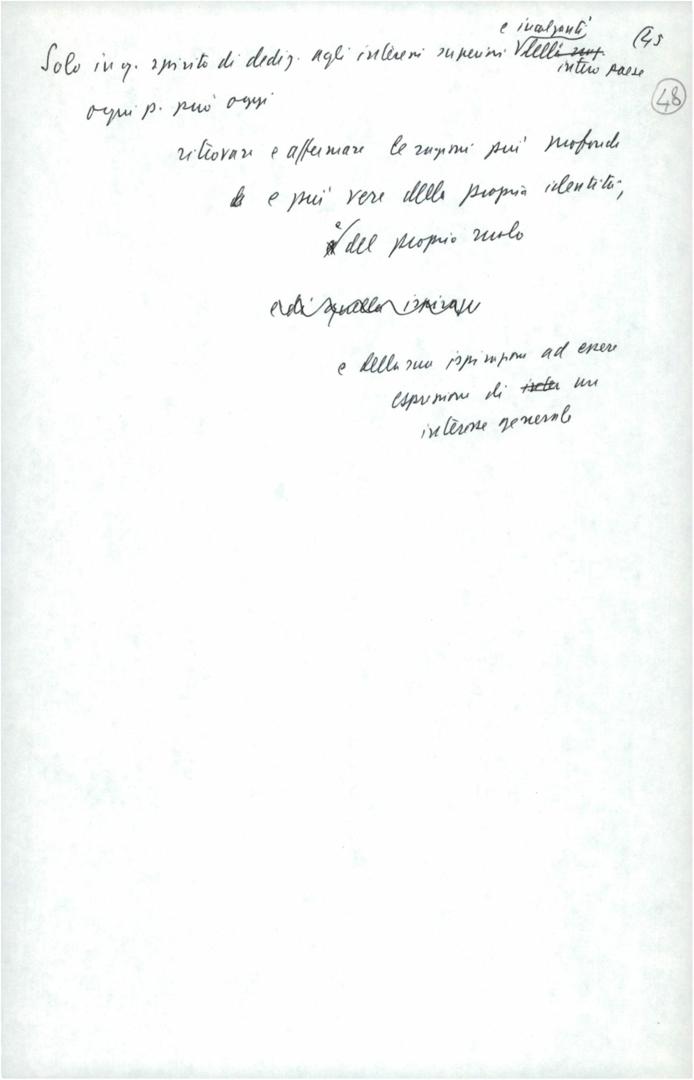 (45
48
e incalzanti
Solo in q. spirito di dediz. agli interessi superiori dell'
intero paese
ogni p. può oggi
ritrovare e affermare le ragioni più profonde
e più vere della propria identità,
e del proprio ruolo
e di quella ispiraz
e della sua ispirazione ad essere
espressione di un
interesse generale